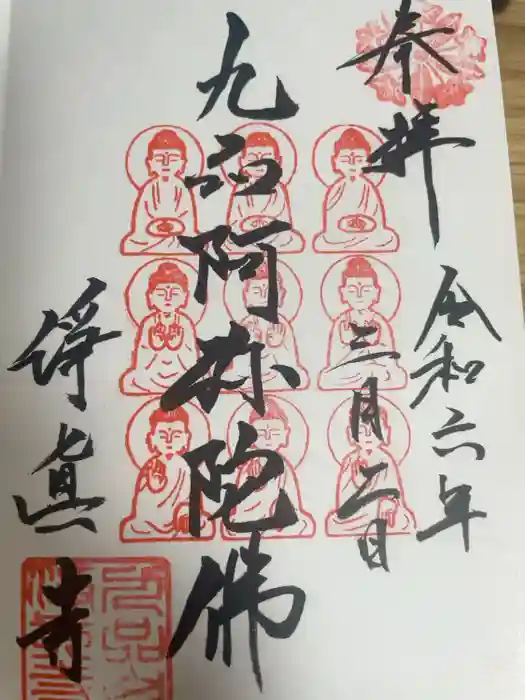 奉拜
令和六年
三月二日
九品阿弥陀佛
浄真寺